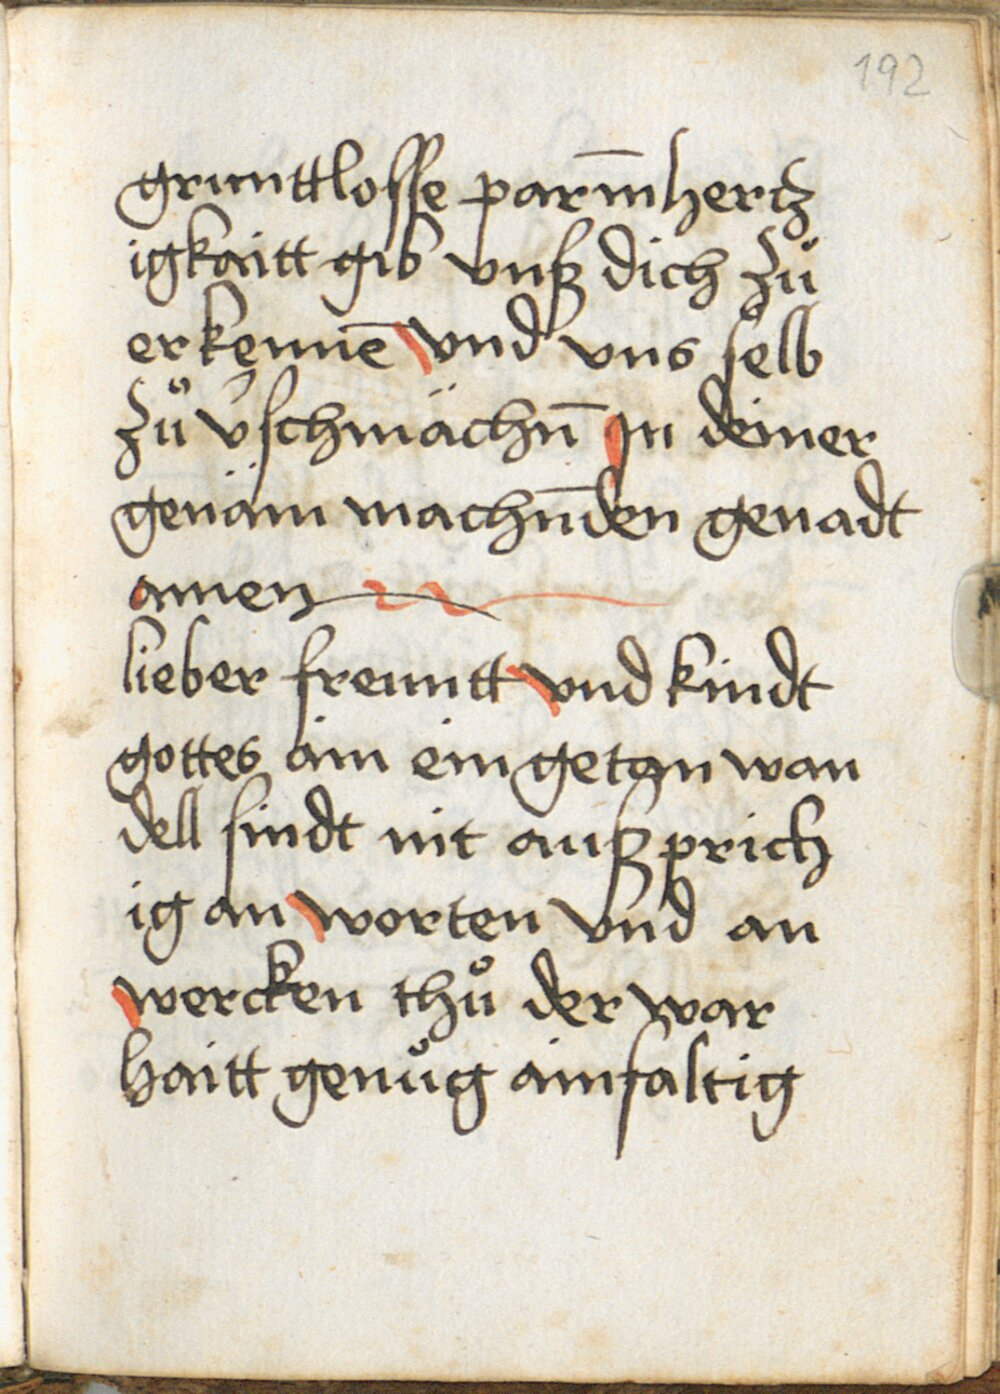 192
grunttlosse parm̄hertz
igkaitt gib vnß dich zů
erkennē vnd vns selb
zů v̓schmächn̄ In deiner
genäm machn̄den genadt
amen
lieber freuntt vnd kindt
gottes ain ein getan wan
dell sindt nit außprich
ig an worten vnd an
wercken thů der war
haitt genůg ainfaltig